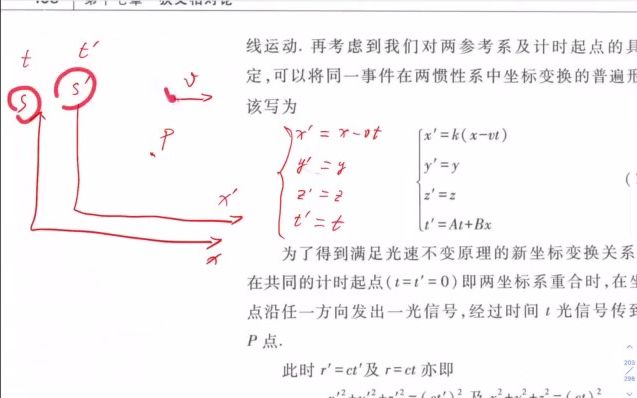 t
t'
S
S'
v
P
x'
x
x' = x - vt
y' = y
z' = z
t' = t
线运动. 再考虑到我们对两参考系及计时起点的
定,可以将同一事件在两惯性系中坐标变换的普遍
该写为
x'=k(x-vt)
y'=y
z'=z
t'=At+Bx
为了得到满足光速不变原理的新坐标变换关系
在共同的计时起点(t=t'=0)即两坐标系重合时,在
点沿任一方向发出一光信号,经过时间 t 光信号传
P 点.
此时 r'=ct' 及 r=ct 亦即
203
298